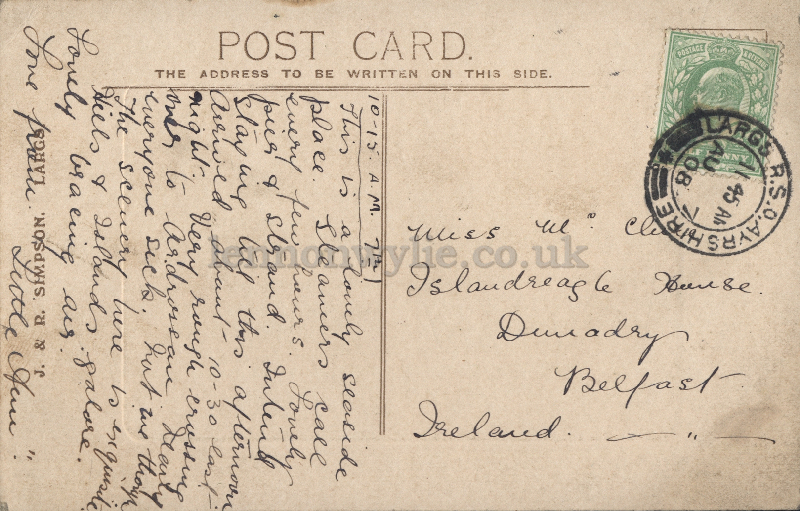 POST CARD.
THE ADDRESS TO BE WRITTEN ON THIS SIDE.
10-15. A.M. 7th)
This is a lovely seaside
place. Steamers call
every few hours. Lovely
pier & Strand. Intend
staying here this afternoon
arrived about 10-30 last
night. Very rough crossing
over to Ardrossan. Nearly
everyone sick. Not me though
The scenery here is exquisite
Hills & Islands galore.
Lovely bracing air.
Love from Little Ann "
J. & R. SIMPSON, LARGS
LARGS R.S.O. AYRSHIRE
7 45 AM
AU 7
08
POSTAGE
Miss Mc
Islandreagh House.
Dunadry
Belfast
Ireland. — " —
lennonwylie.co.uk